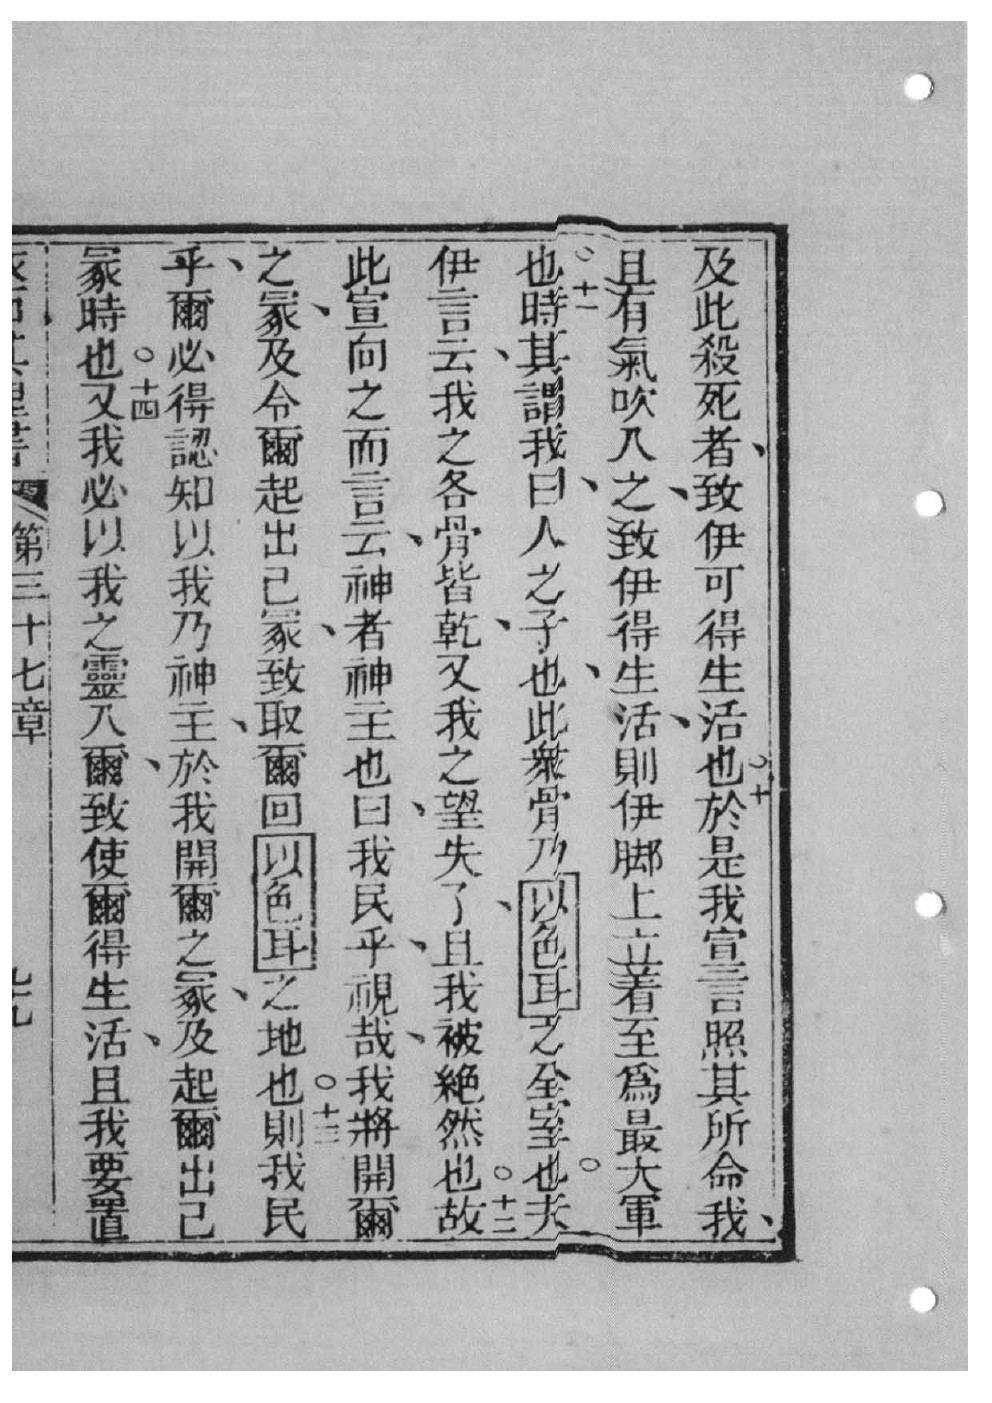 及此殺死者、致伊可得生活也○十於是我宣言照其所命我、
且有氣吹入之、致伊得生活、則伊脚上立着至爲最大軍
也○十一時其謂我曰、人之子也、此衆骨乃以色耳之全室也○夫
伊言云、我之各骨皆乾、又我之望失了、且我被絕然也○十二故
此宣向之而言云、神者神主也曰、我民乎、視哉、我將開爾
之冢、及令爾起出己冢、致取爾回以色耳之地也○十三則我民
乎、爾必得認知以我乃神主、於我開爾之冢、及起爾出己
冢時也○十四又我必以我之靈入爾、致使爾得生活、且我要置
第三十七章